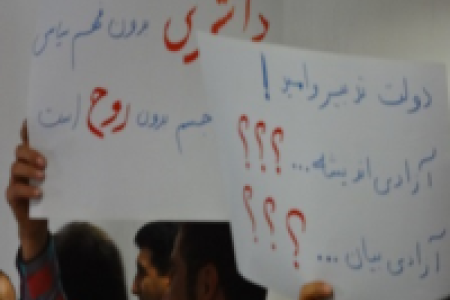 دولت تدبیر و امید !
آزادی اندیشه... ؟؟؟
آزادی بیان ... ؟؟؟
بدون فهم سیاسی
جسم بدون روح است